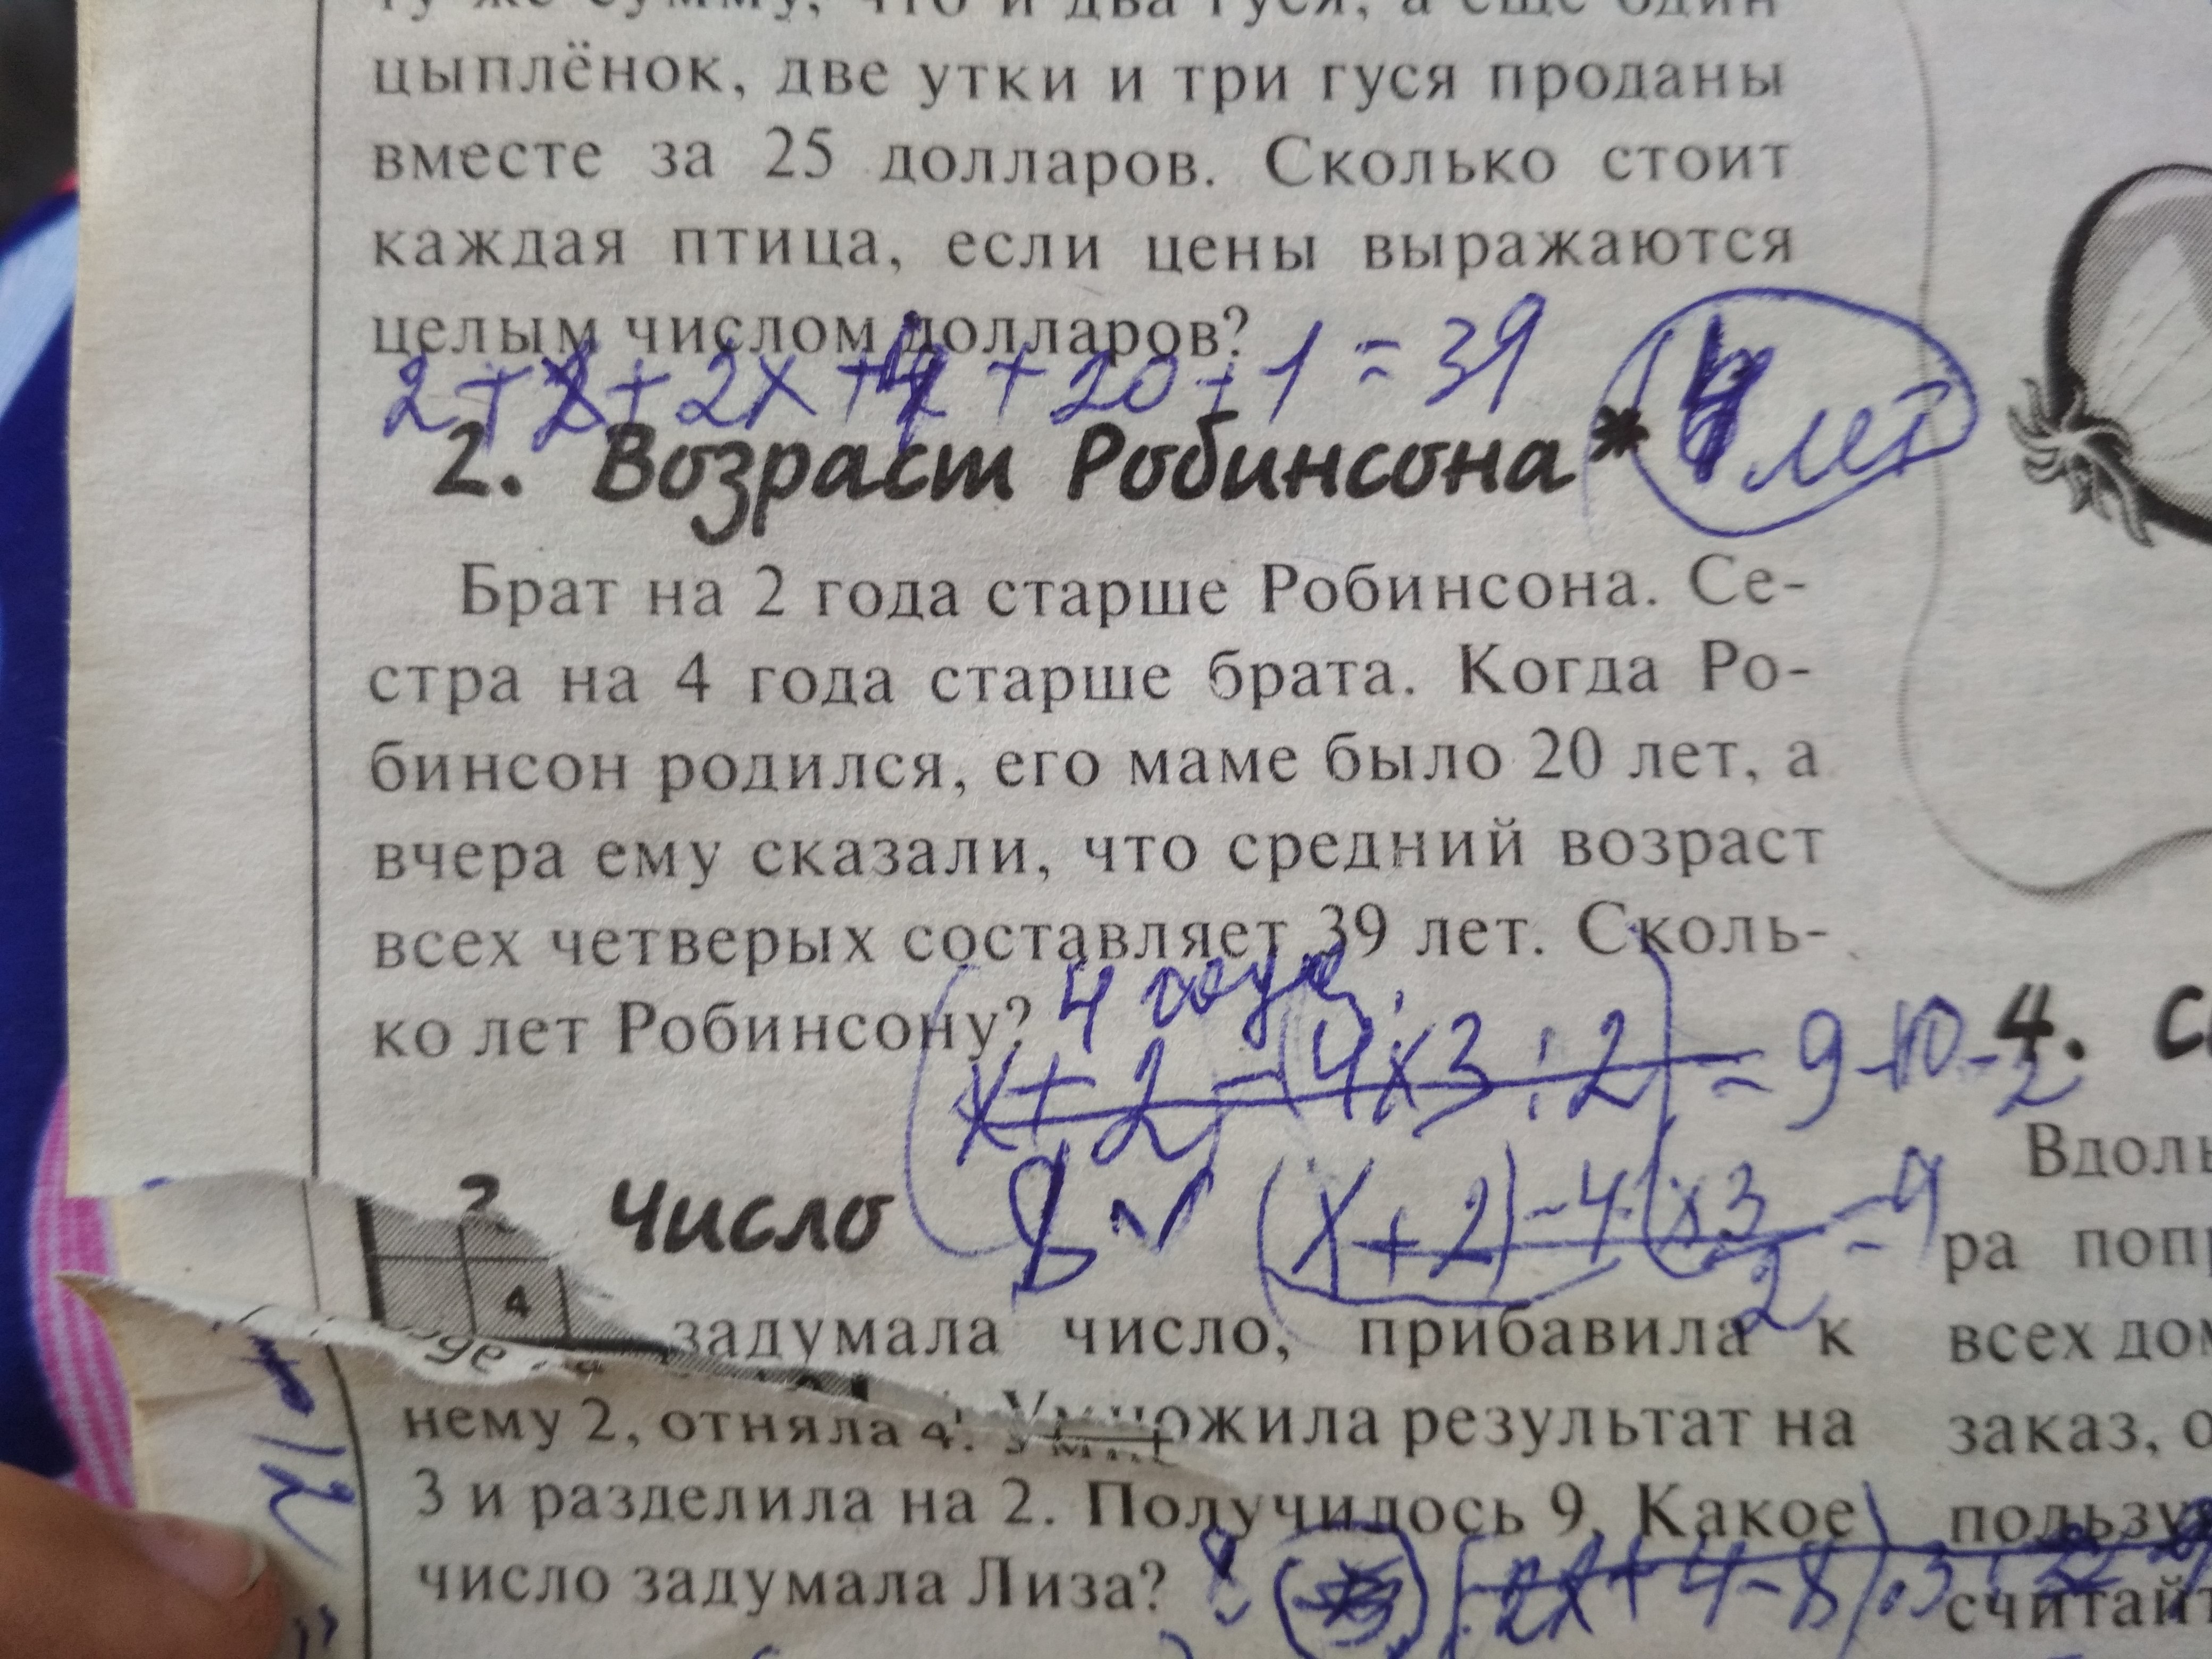 ту же сумму, что и два гуся, а ещё один
цыплёнок, две утки и три гуся проданы
вместе за 25 долларов. Сколько стоит
каждая птица, если цены выражаются
целым числом долларов?
+ 2x + + 20 + 1 = 39
лет
2. Возраст Робинсона*
Брат на 2 года старше Робинсона. Се-
стра на 4 года старше брата. Когда Ро-
бинсон родился, его маме было 20 лет, а
вчера ему сказали, что средний возраст
всех четверых составляет 39 лет. Сколь-
ко лет Робинсону? 4 года
x + 2 - (4 x 3 : 2) = 9
8 (x + 2) - 4 x 3
2
Число
4
задумала число, прибавила к
нему 2, отняла 4. Умножила результат на
3 и разделила на 2. Получилось 9. Какое
число задумала Лиза?
4. С
Вдоль
ра попр
всех дом
заказ, о
пользу
считайт